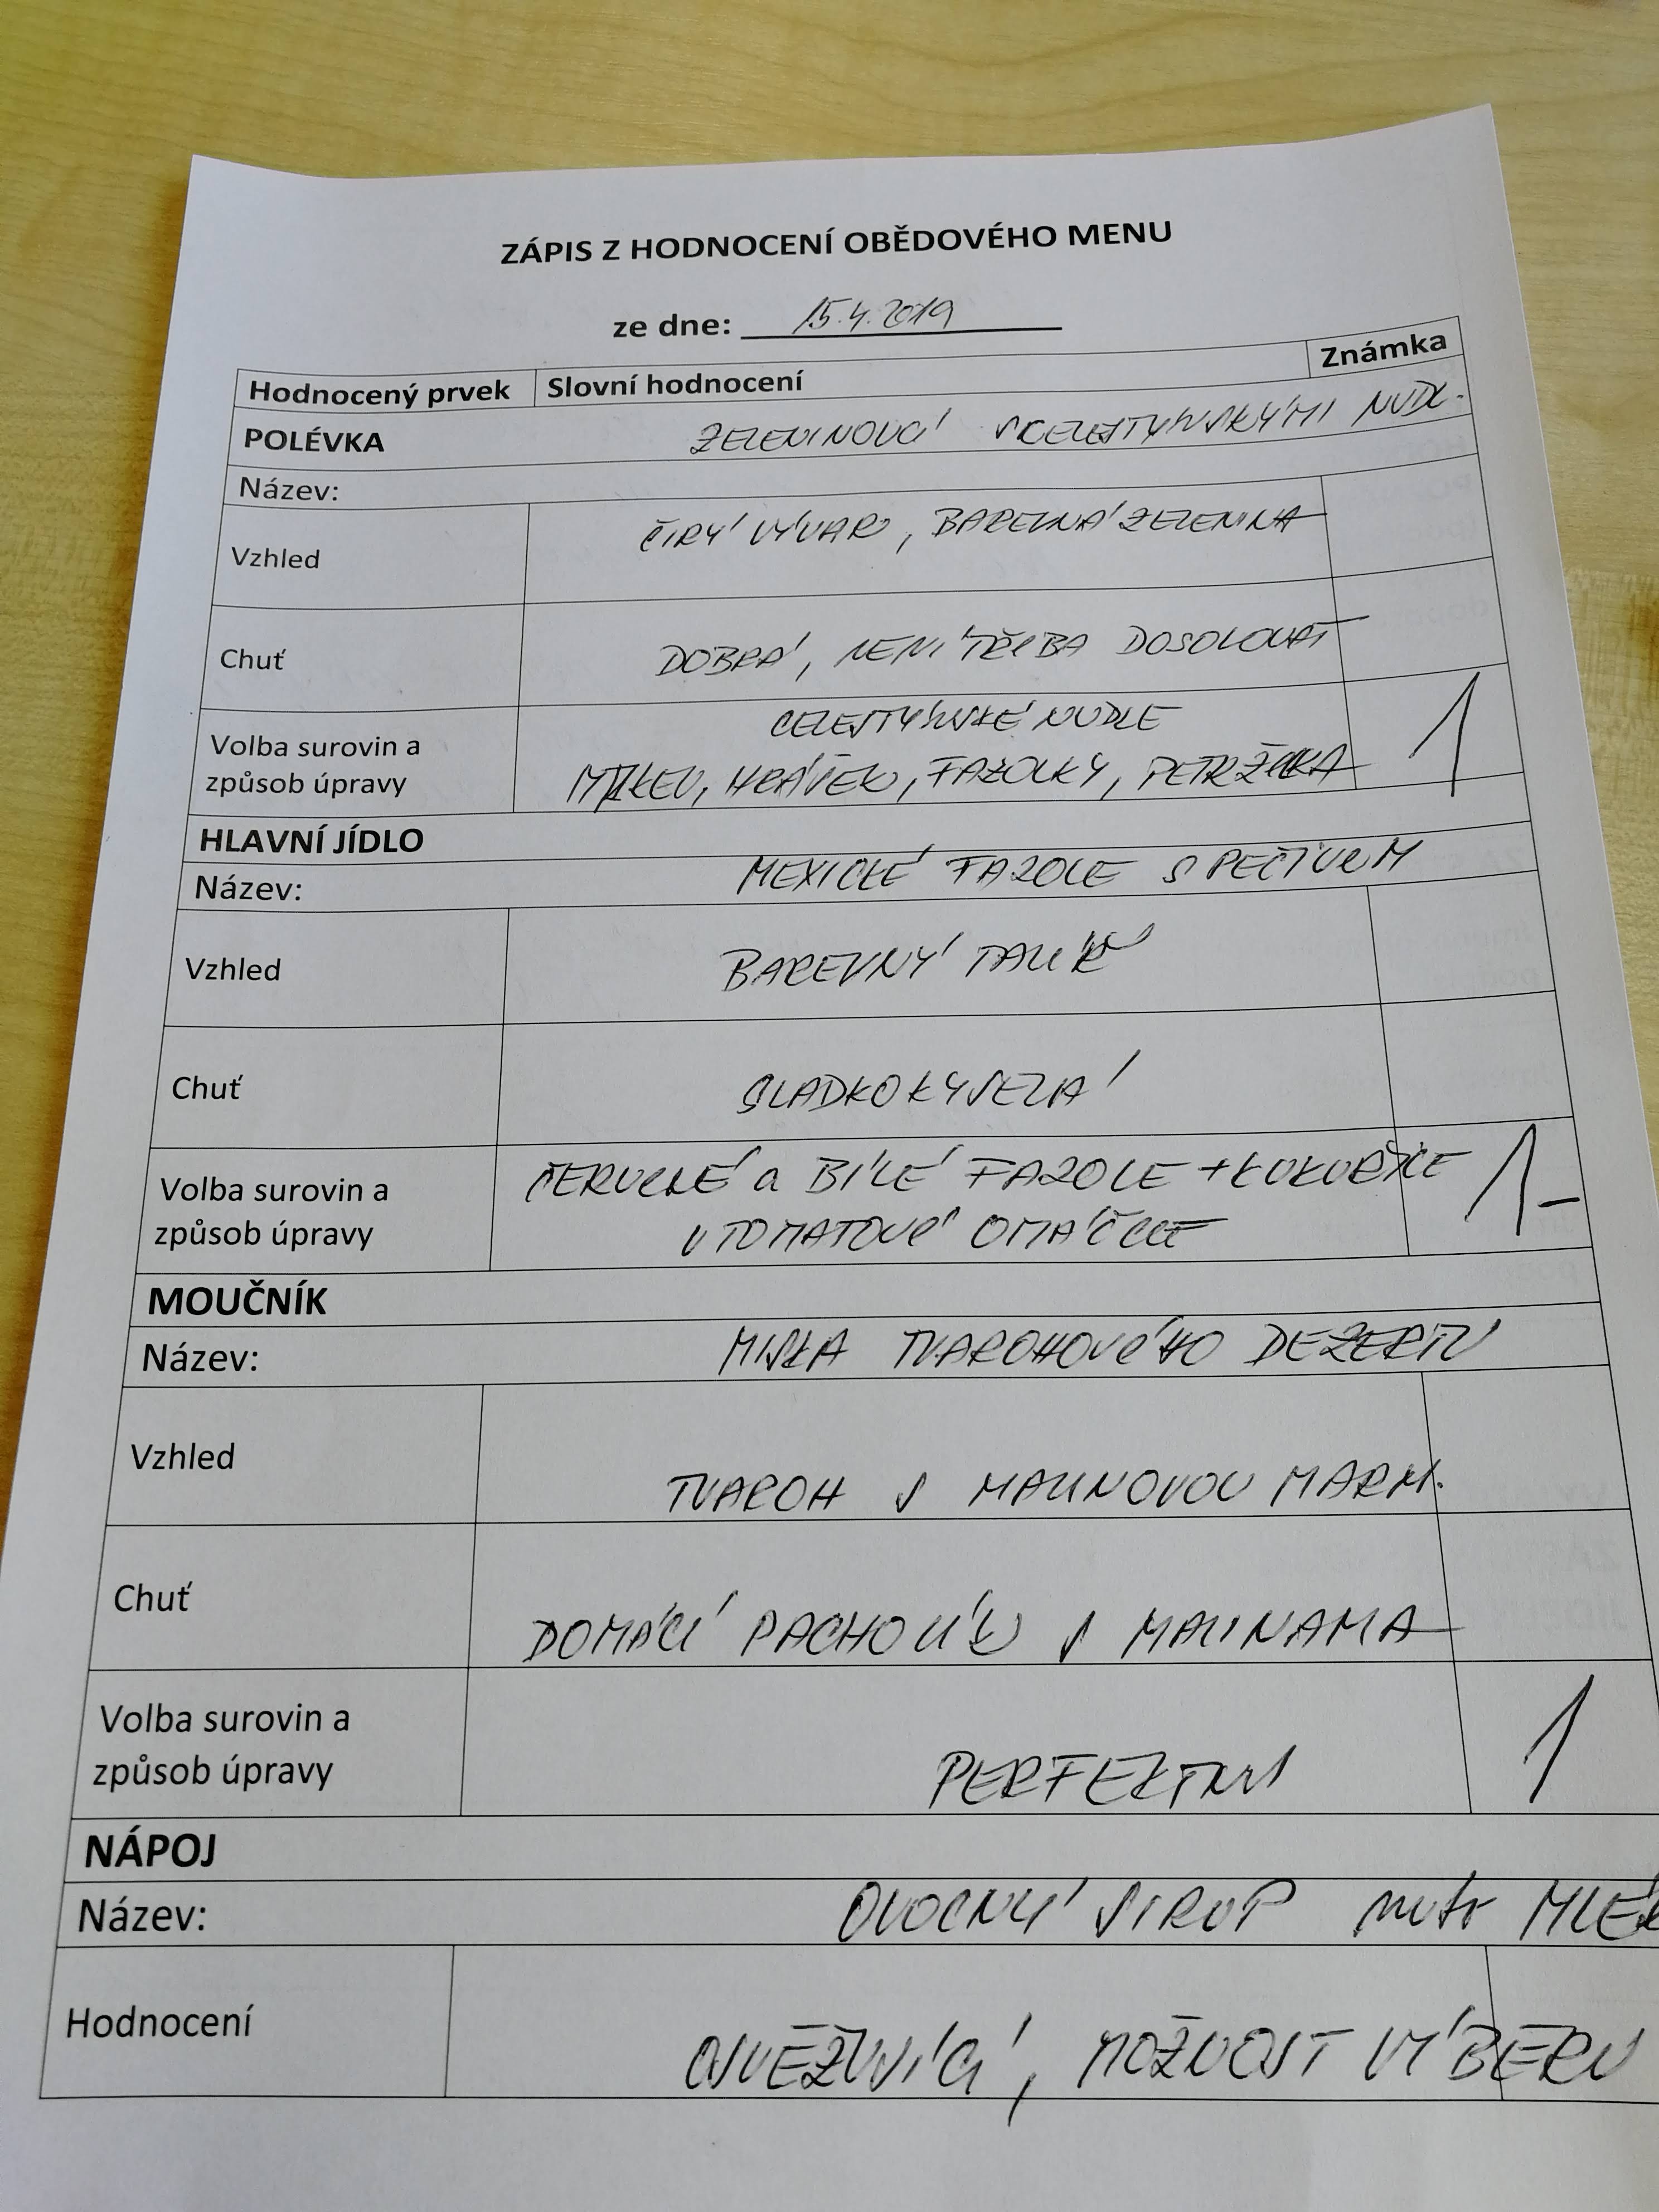 ZÁPIS Z HODNOCENÍ OBĚDOVÉHO MENU
ze dne: 15.4.2019
Hodnocený prvek Slovní hodnocení Známka
POLÉVKA ZELENINOVÁ S CELESTÝNSKÝMI NUDL.
Název:
Vzhled ČIRÝ VÝVAR, BAREVNÁ ZELENINA
Chuť DOBRÁ, NENÍ TŘEBA DOSOLOVAT
CELESTÝNSKÉ NUDLE
Volba surovin a způsob úpravy MRKEV, HRÁŠEK, FAZOLKY, PETRŽELKA 1
HLAVNÍ JÍDLO
Název: MEXICKÉ FAZOLE S PEČIVEM
Vzhled BAREVNÝ TALÍŘ
Chuť SLADKOKYSELÁ
Volba surovin a ČERVENÉ a BÍLÉ FAZOLE + KUKUŘICE 1-
způsob úpravy V TOMATOVÉ OMÁČCE
MOUČNÍK
Název: MISKA TVAROHOVÉHO DEZERTU
Vzhled TVAROH S MALINOVOU MARM.
Chuť DOMÁCÍ PACHOLÍK S MALINAMA
Volba surovin a
způsob úpravy PERFEKTNÍ 1
NÁPOJ
Název: OVOCNÝ SIRUP
Hodnocení OSVĚŽUJÍCÍ, MOŽNOST VÝBĚRU